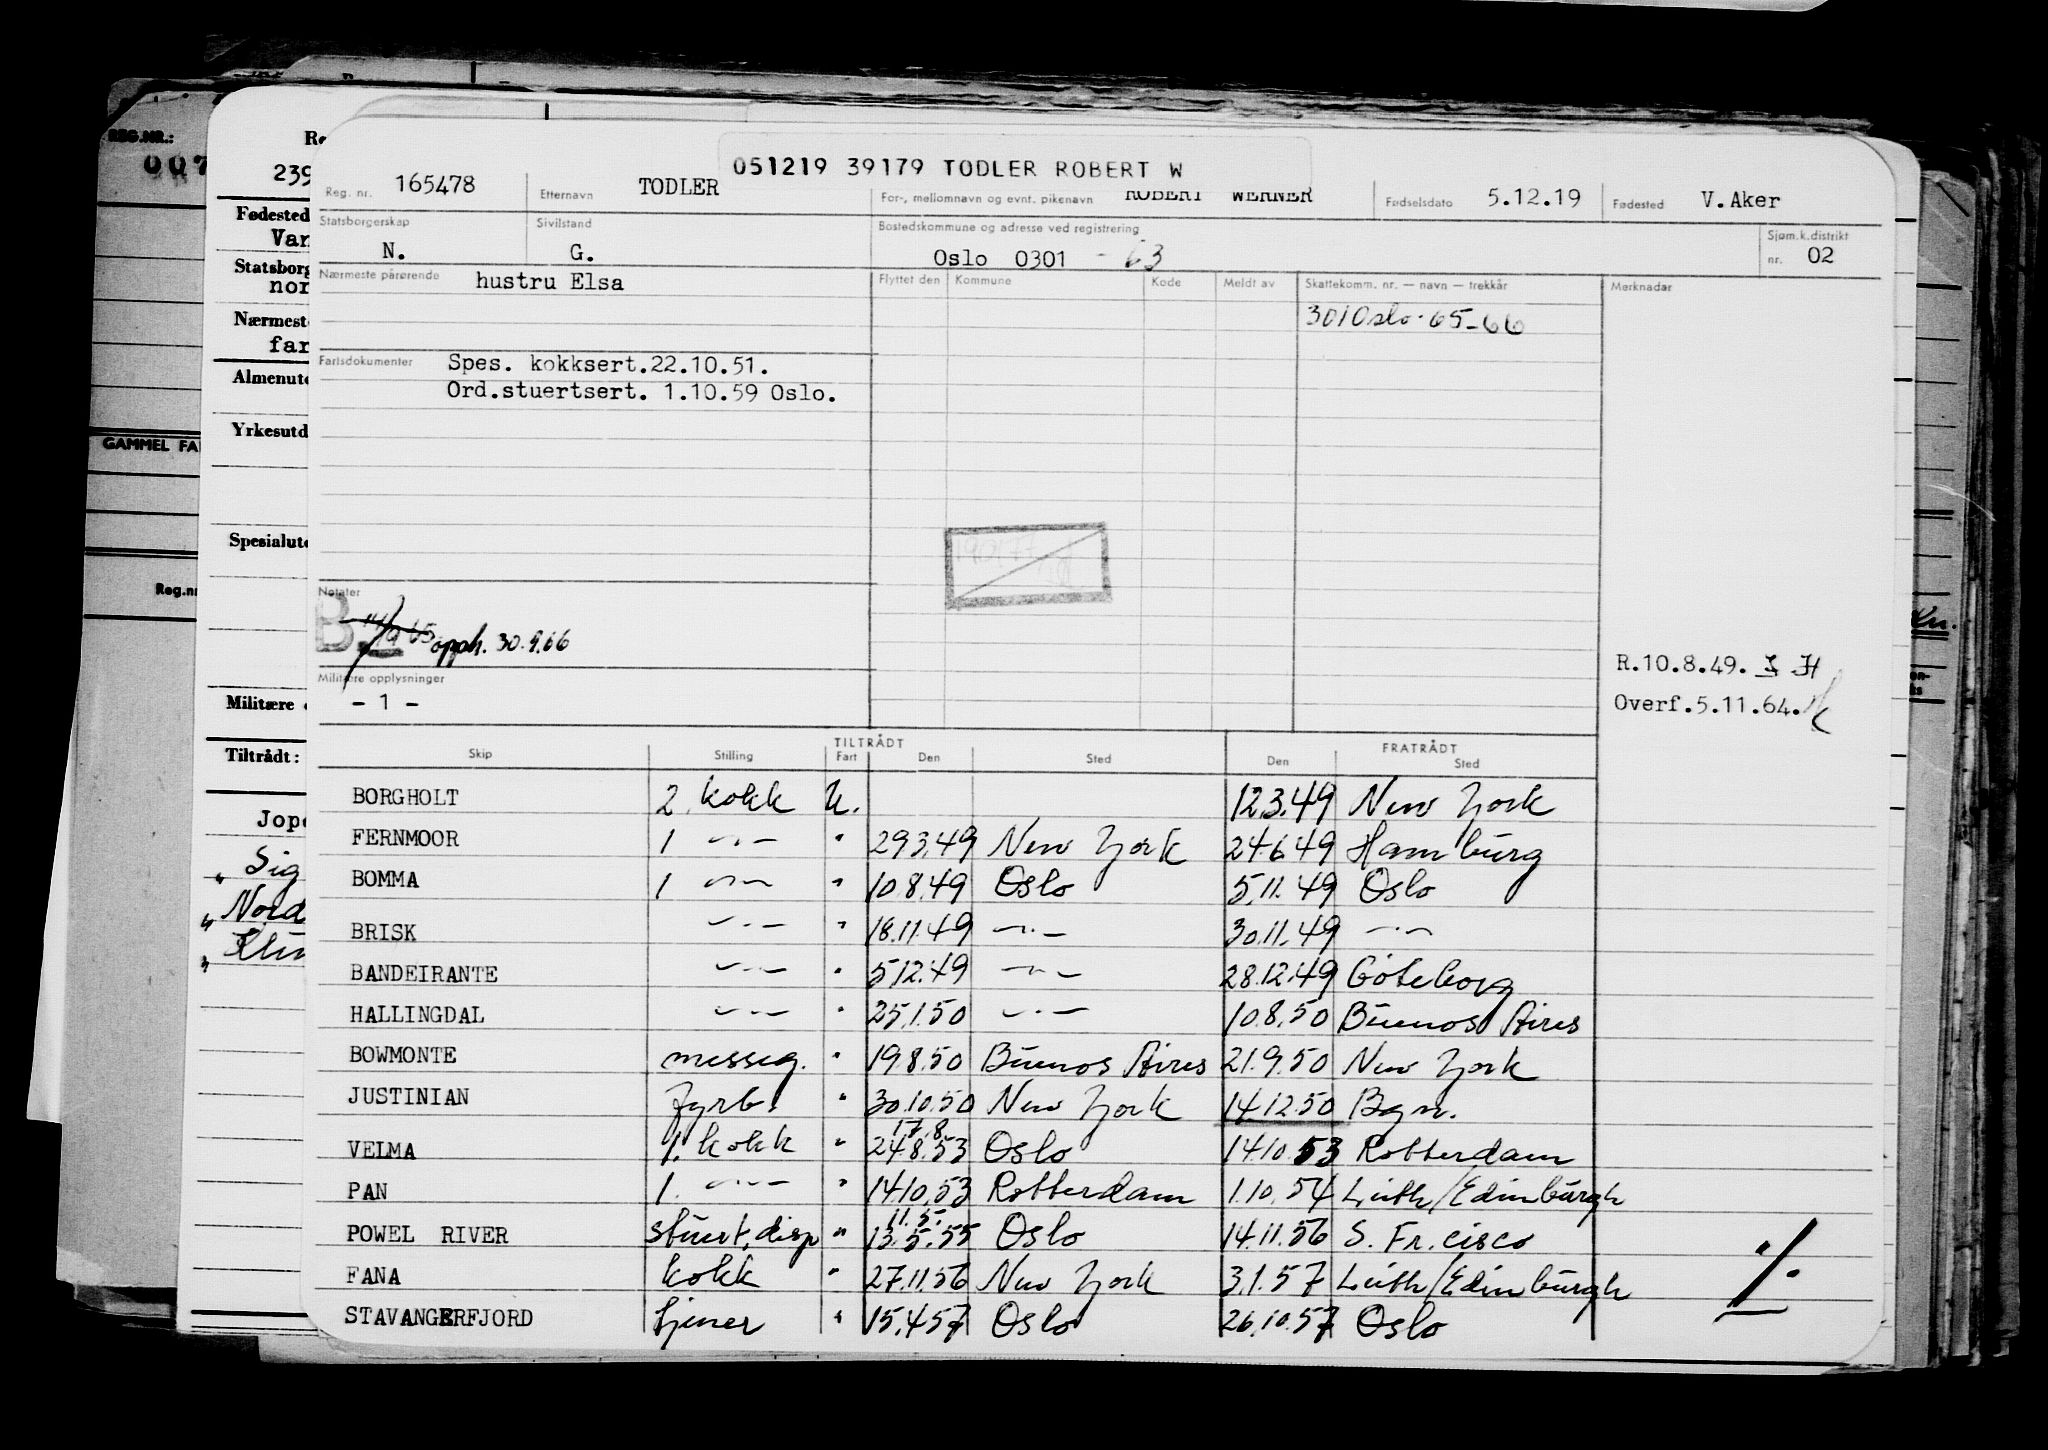 REG.NR.:
007
239
Fødested
Var
Statsborg
nor
Nærmest
far
Almenut
Yrkesutd
GAMMEL FA
Spesialut
Reg.nr
Militære
Tiltrådt:
Jope
" Sig
" Nord
"
051219 39179 TODLER ROBERT W
Reg. nr. 165478 Etternavn TODLER For-, mellomnavn og evnt. pikenavn ROBERT WERNER Fødselsdato 5.12.19 Fødested V.Aker
Statsborgerskap N. Sivilstand G. Bostedskommune og adresse ved registrering Oslo 0301 - 63 Sjøm.k.distrikt nr. 02
Nærmeste pårørende hustru Elsa Flyttet den Kommune Kode Meldt av Skattekomm. nr. — navn — trekkår Merknader
301 Oslo - 65-66
Fartsdokumenter Spes. kokksert.22.10.51.
Ord.stuertsert. 1.10.59 Oslo.
Notater
B. 65 opph. 30.9.66
R.10.8.49.
Militære opplysninger
- 1 - Overf.5.11.64.
TILTRÅDT FRATRÅDT
Skip Stilling Fart Den Sted Den Sted
BORGHOLT 2. kokk U. 12.3.49 New York
FERNMOOR 1 —"— " 29.3.49 New York 24.6.49 Hamburg
BOMMA 1 —"— " 10.8.49 Oslo 5.11.49 Oslo
BRISK —"— " 18.11.49 —"— 30.11.49 —"—
BANDEIRANTE —"— " 5.12.49 —"— 28.12.49 Göteborg
HALLINGDAL —"— " 25.1.50 —"— 10.8.50 Buenos Aires
BOWMONTE messeg. " 19.8.50 Buenos Aires 21.9.50 New York
JUSTINIAN fyrb. " 30.10.50 New York 14.12.50 Bgn.
17.8.
VELMA 1. kokk " 24.8.53 Oslo 14.10.53 Rotterdam
PAN 1. —"— " 14.10.53 Rotterdam 1.10.54 Leith/Edinburgh
11.5.
POWEL RIVER stuert, disp " 13.5.55 Oslo 14.11.56 S. Fr.cisco
FANA kokk " 27.11.56 New York 3.1.57 Leith/Edinburgh
STAVANGERFJORD tjener " 15.4.57 Oslo 26.10.57 Oslo